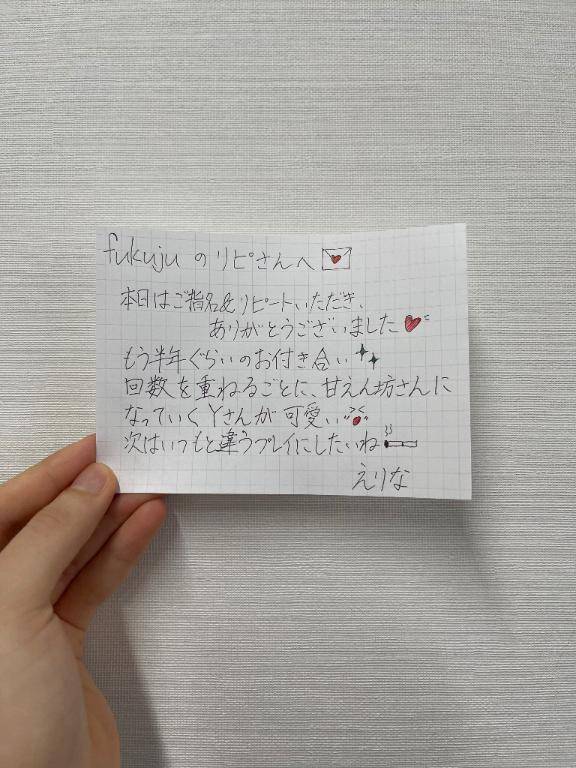 fukujuのリピさんへ
本日はご指名&リピートいただき、
ありがとうございました
もう半年ぐらいのお付き合い
回数を重ねるごとに、甘えん坊さんに
なっていくYさんが可愛い
次はいつもと違うプレイにしたいね
えりな